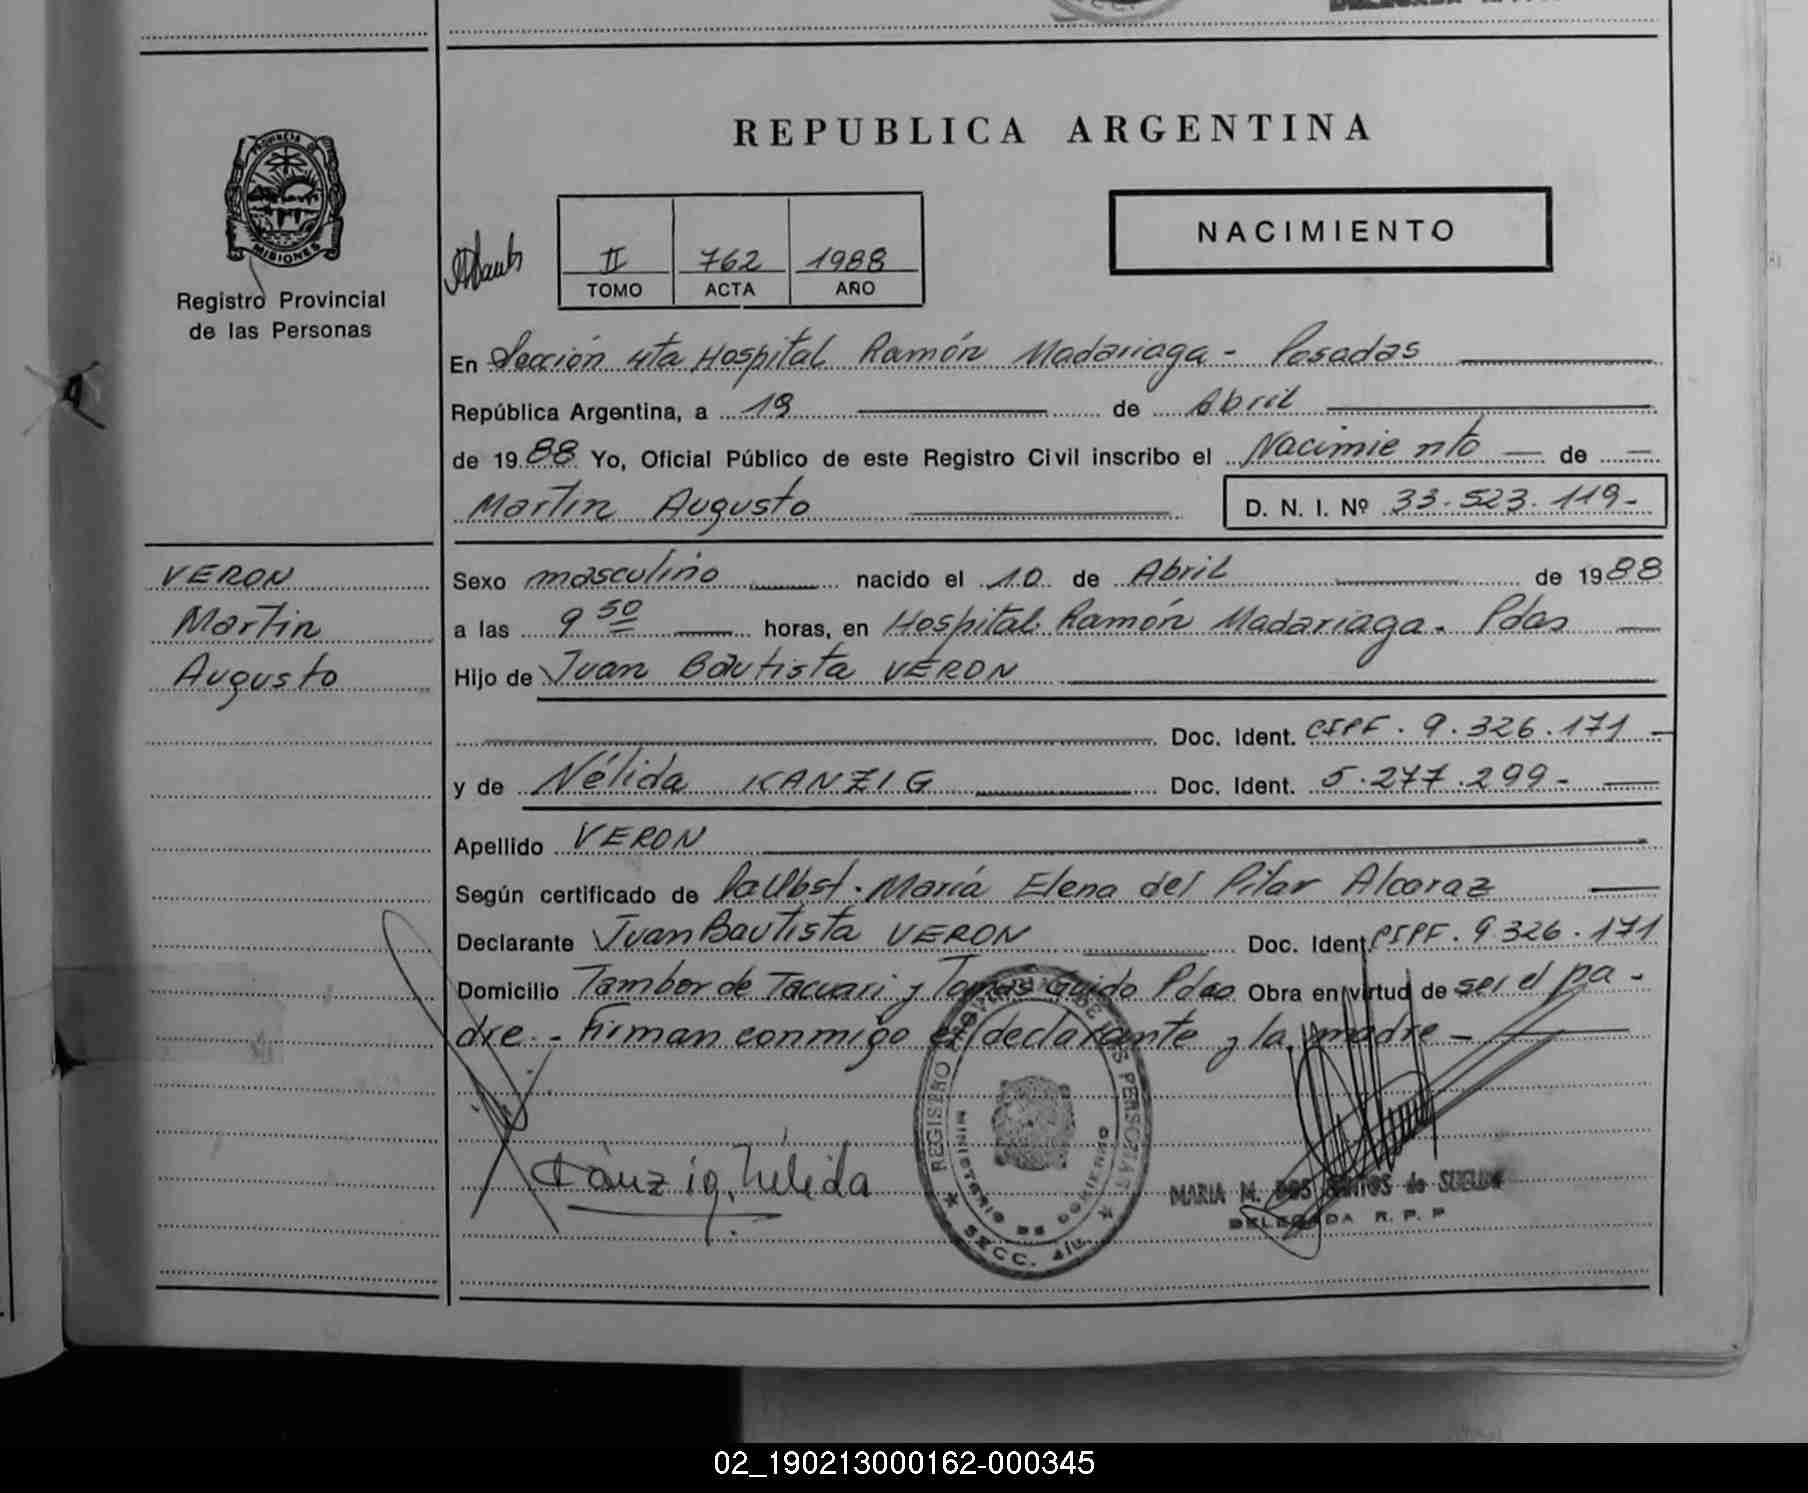 REPUBLICA ARGENTINA
PROVINCIA DE
MISIONES
Registro Provincial
de las Personas
II 762 1988
TOMO ACTA AÑO
NACIMIENTO
En Sección 4ta Hospital Ramón Madariaga - Posadas
República Argentina, a 19 de Abril
de 1988 Yo, Oficial Público de este Registro Civil inscribo el Nacimiento de
Martin Augusto D. N. I. Nº 33.523.119-
VERON
Martin
Augusto
Sexo masculino nacido el 10 de Abril de 1988
a las 9 50 horas, en Hospital Ramón Madariaga - Pdas
Hijo de Juan Bautista VERON
Doc. Ident. CIPF. 9.326.171
y de Nélida KANZIG Doc. Ident. 5.277.299-
Apellido VERON
Según certificado de la Obst. María Elena del Pilar Alcaraz
Declarante Juan Bautista VERON Doc. Ident. CIPF. 9.326.171
Domicilio Tambor de Tacuari y Tomas Guido Pdas Obra en virtud de ser el pa-
dre.- Firman conmigo el declarante y la madre -
Kànzig, Nélida
REGISTRO PROVINCIAL DE LAS PERSONAS
MINISTERIO DE GOBIERNO
SECC. 4ta.
MARIA M. DOS SANTOS de
DELEGADA R. P. P
02_190213000162-000345